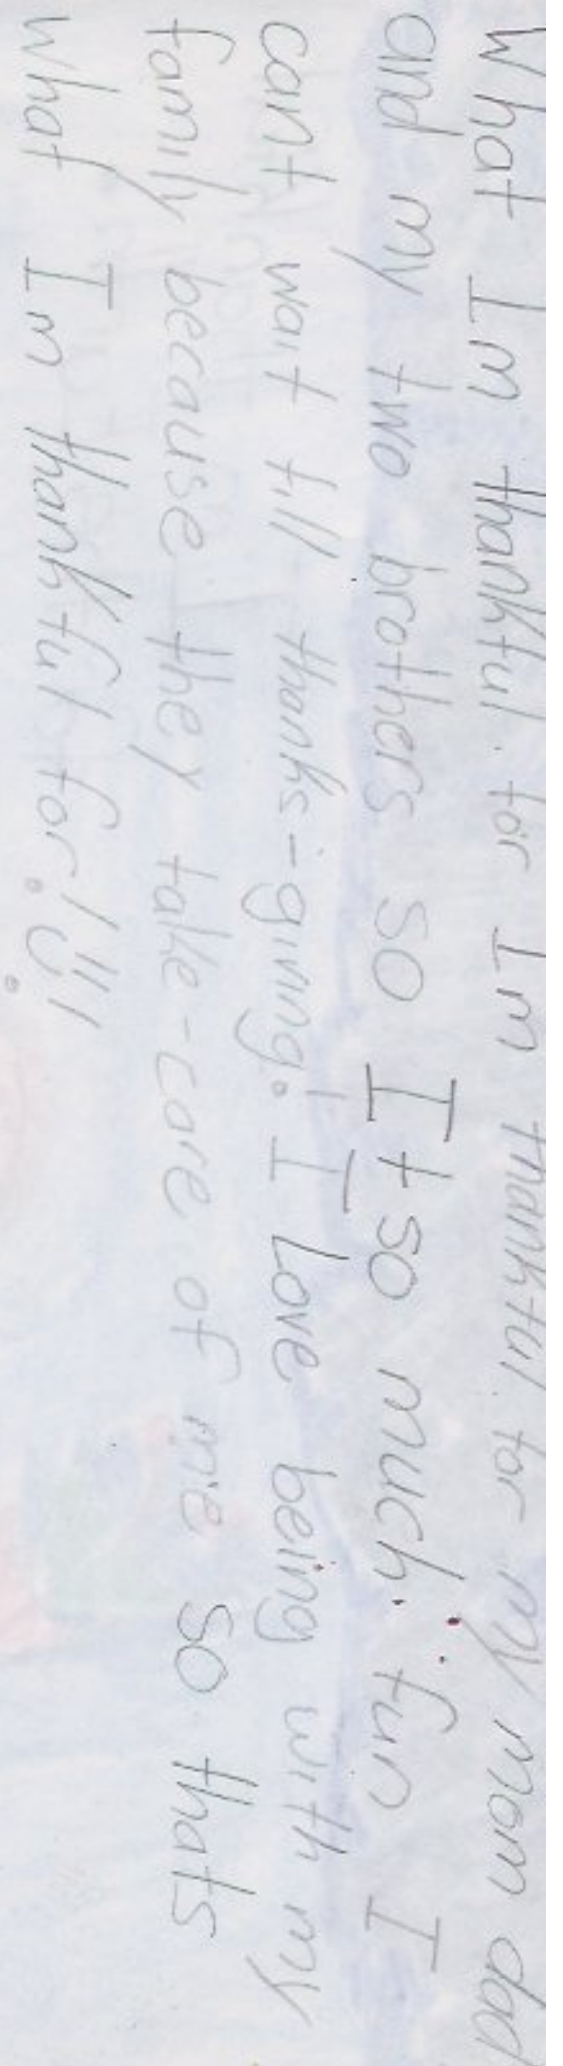 What Im thankful for Im thankful for my mom dad
and my two brothers so It so much fun I
cant wait till thanks-giving. I Love being with my
family because they take-care of me so thats
what Im thankful for!!!